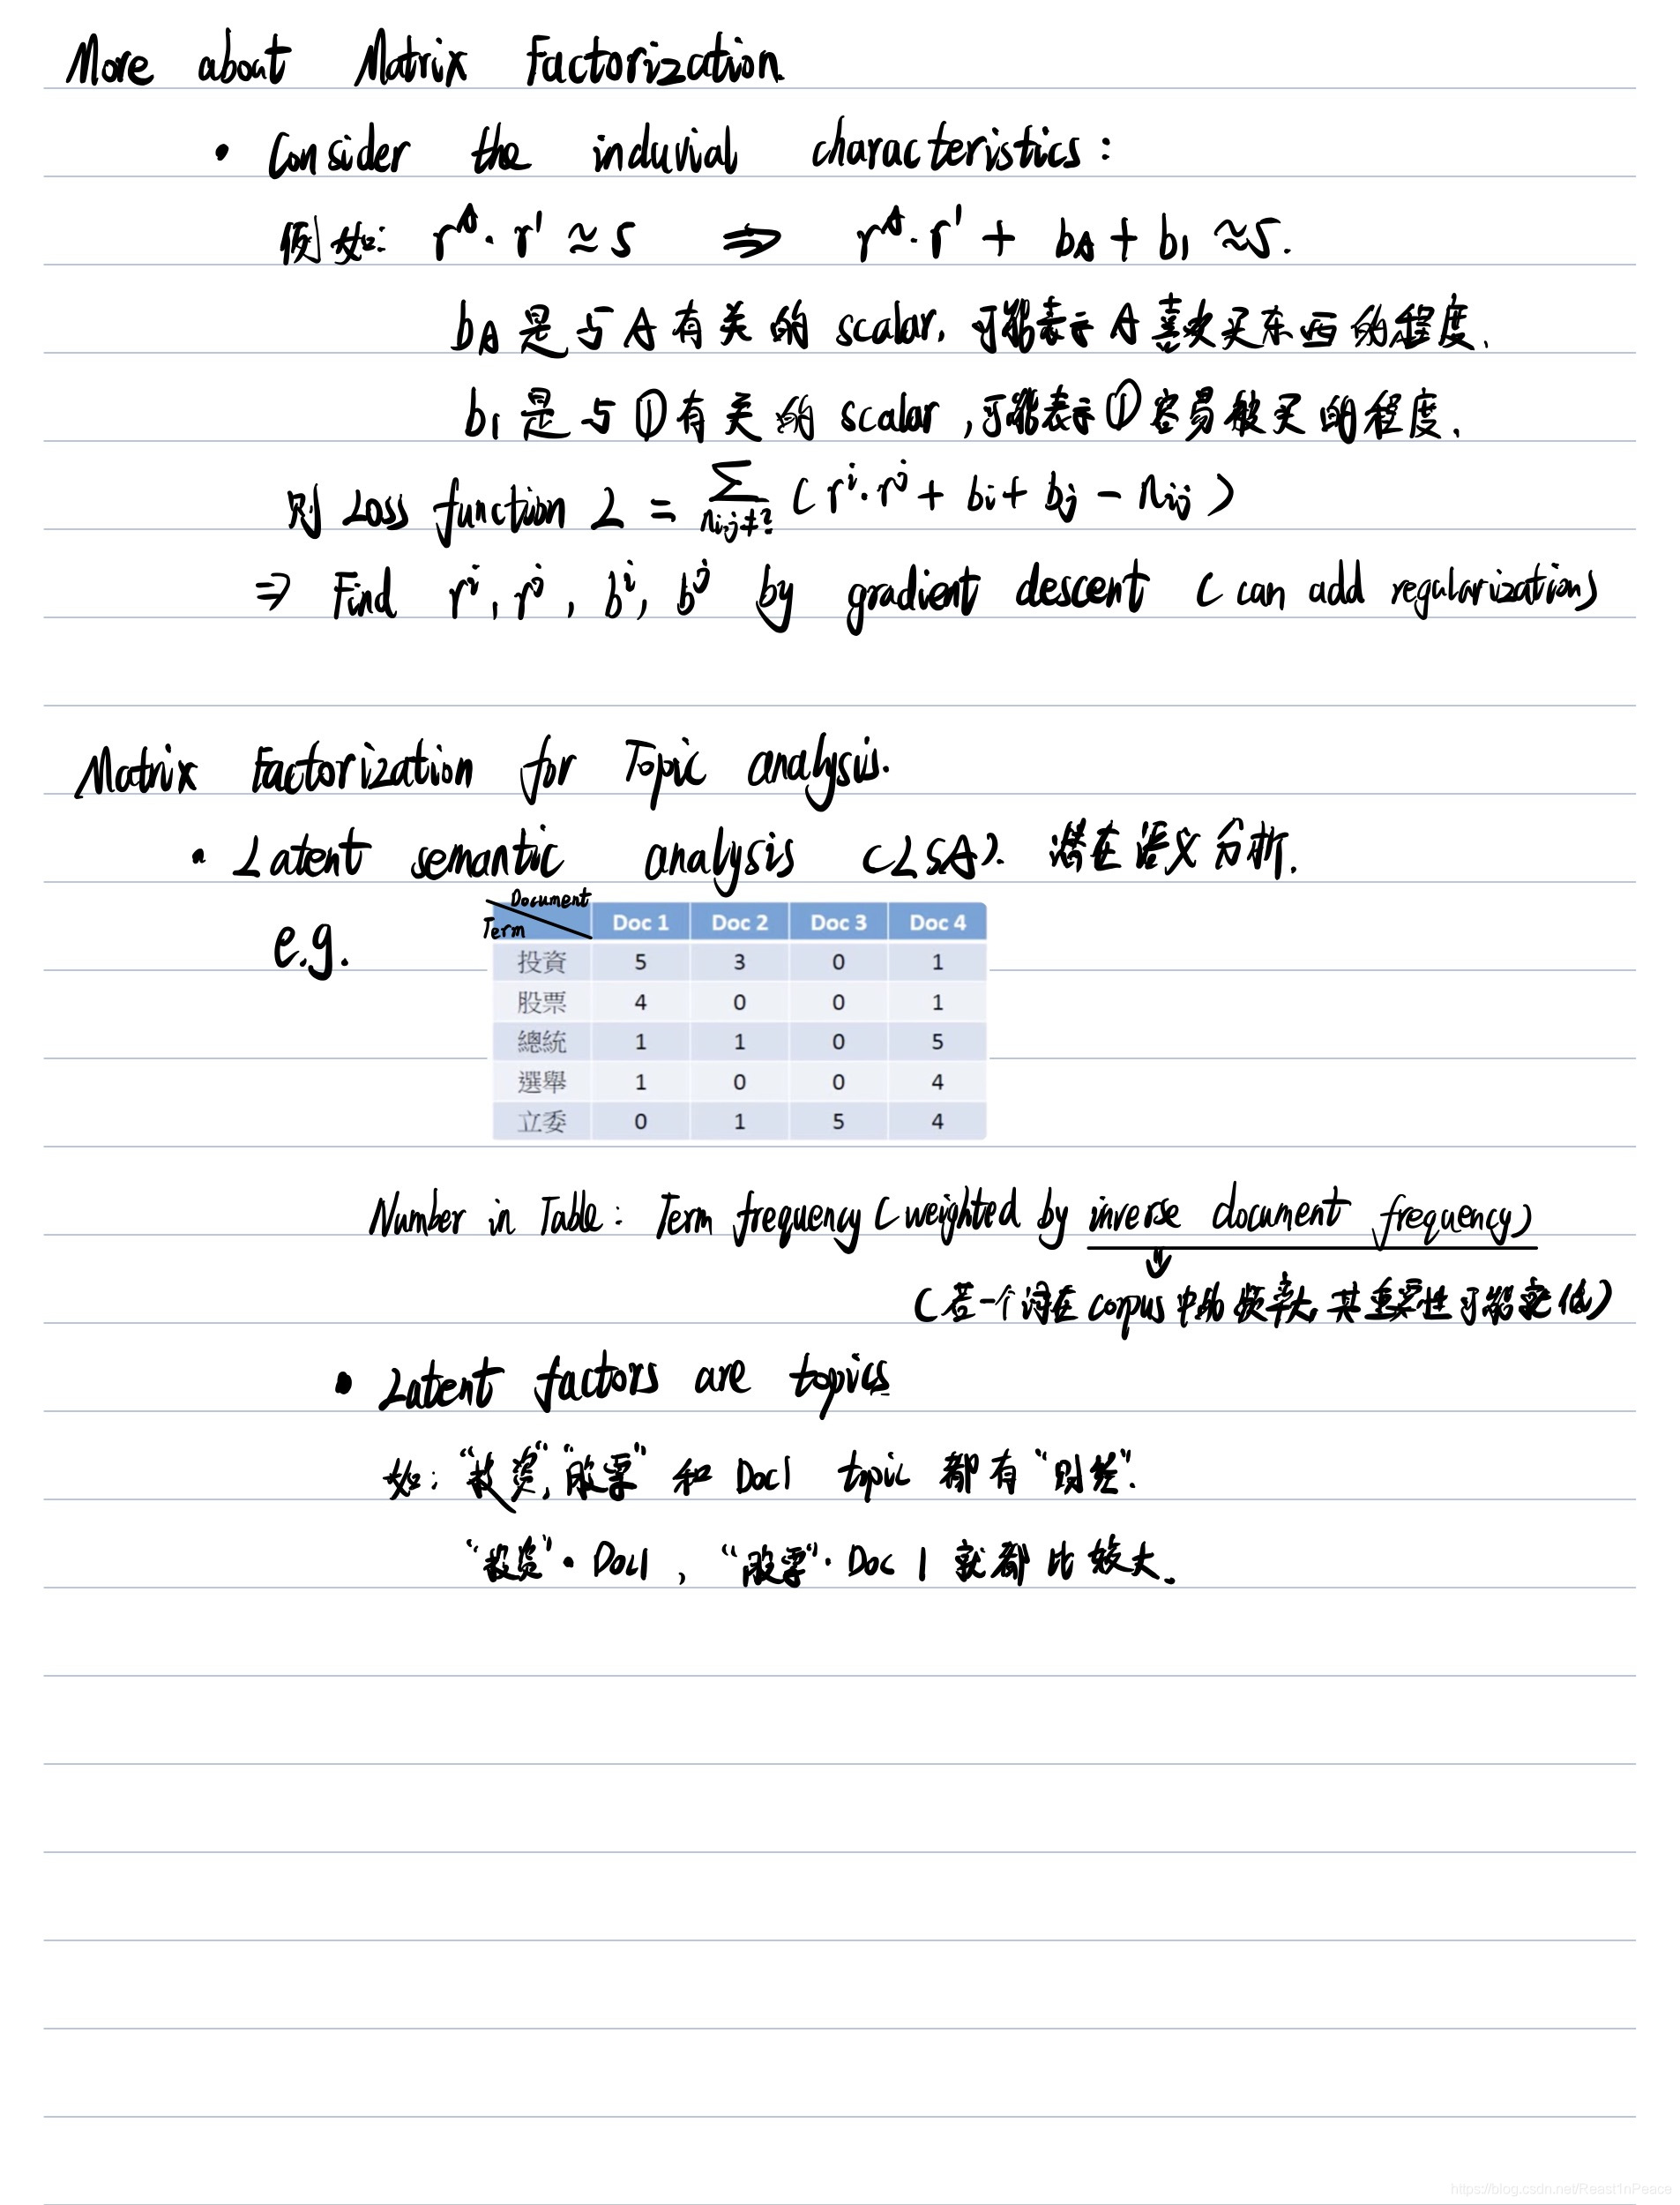 More about Matrix Factorization.
• Consider the induvial characteristics:
例如: r^A · r^1 ≈ 5 ⇒ r^A · r^1 + b_A + b_1 ≈ 5.
b_A 是与 A 有关的 scalar, 可能表示 A 喜欢买东西的程度.
b_1 是与 ① 有关的 scalar, 可能表示 ① 容易被买的程度.
则 Loss function L = ∑_{n_ij ≠ ?} (r^i · r^j + b_i + b_j - n_ij)
⇒ Find r^i, r^j, b^i, b^j by gradient descent (can add regularization)
Matrix Factorization for Topic analysis.
• Latent semantic analysis (LSA). 潜在语义分析.
e.g.
Document
Term Doc 1 Doc 2 Doc 3 Doc 4
投資 5 3 0 1
股票 4 0 0 1
總統 1 1 0 5
選舉 1 0 0 4
立委 0 1 5 4
Number in Table: Term frequency (weighted by inverse document frequency)
(若一个词在 corpus 中的频率大, 其重要性可能更低)
• Latent factors are topics
如: "投资", "股票" 和 Doc1 topic 都有 "财经".
"投资" · Doc1, "股票" · Doc 1 就都比较大.
https://blog.csdn.net/Reast1nPeace